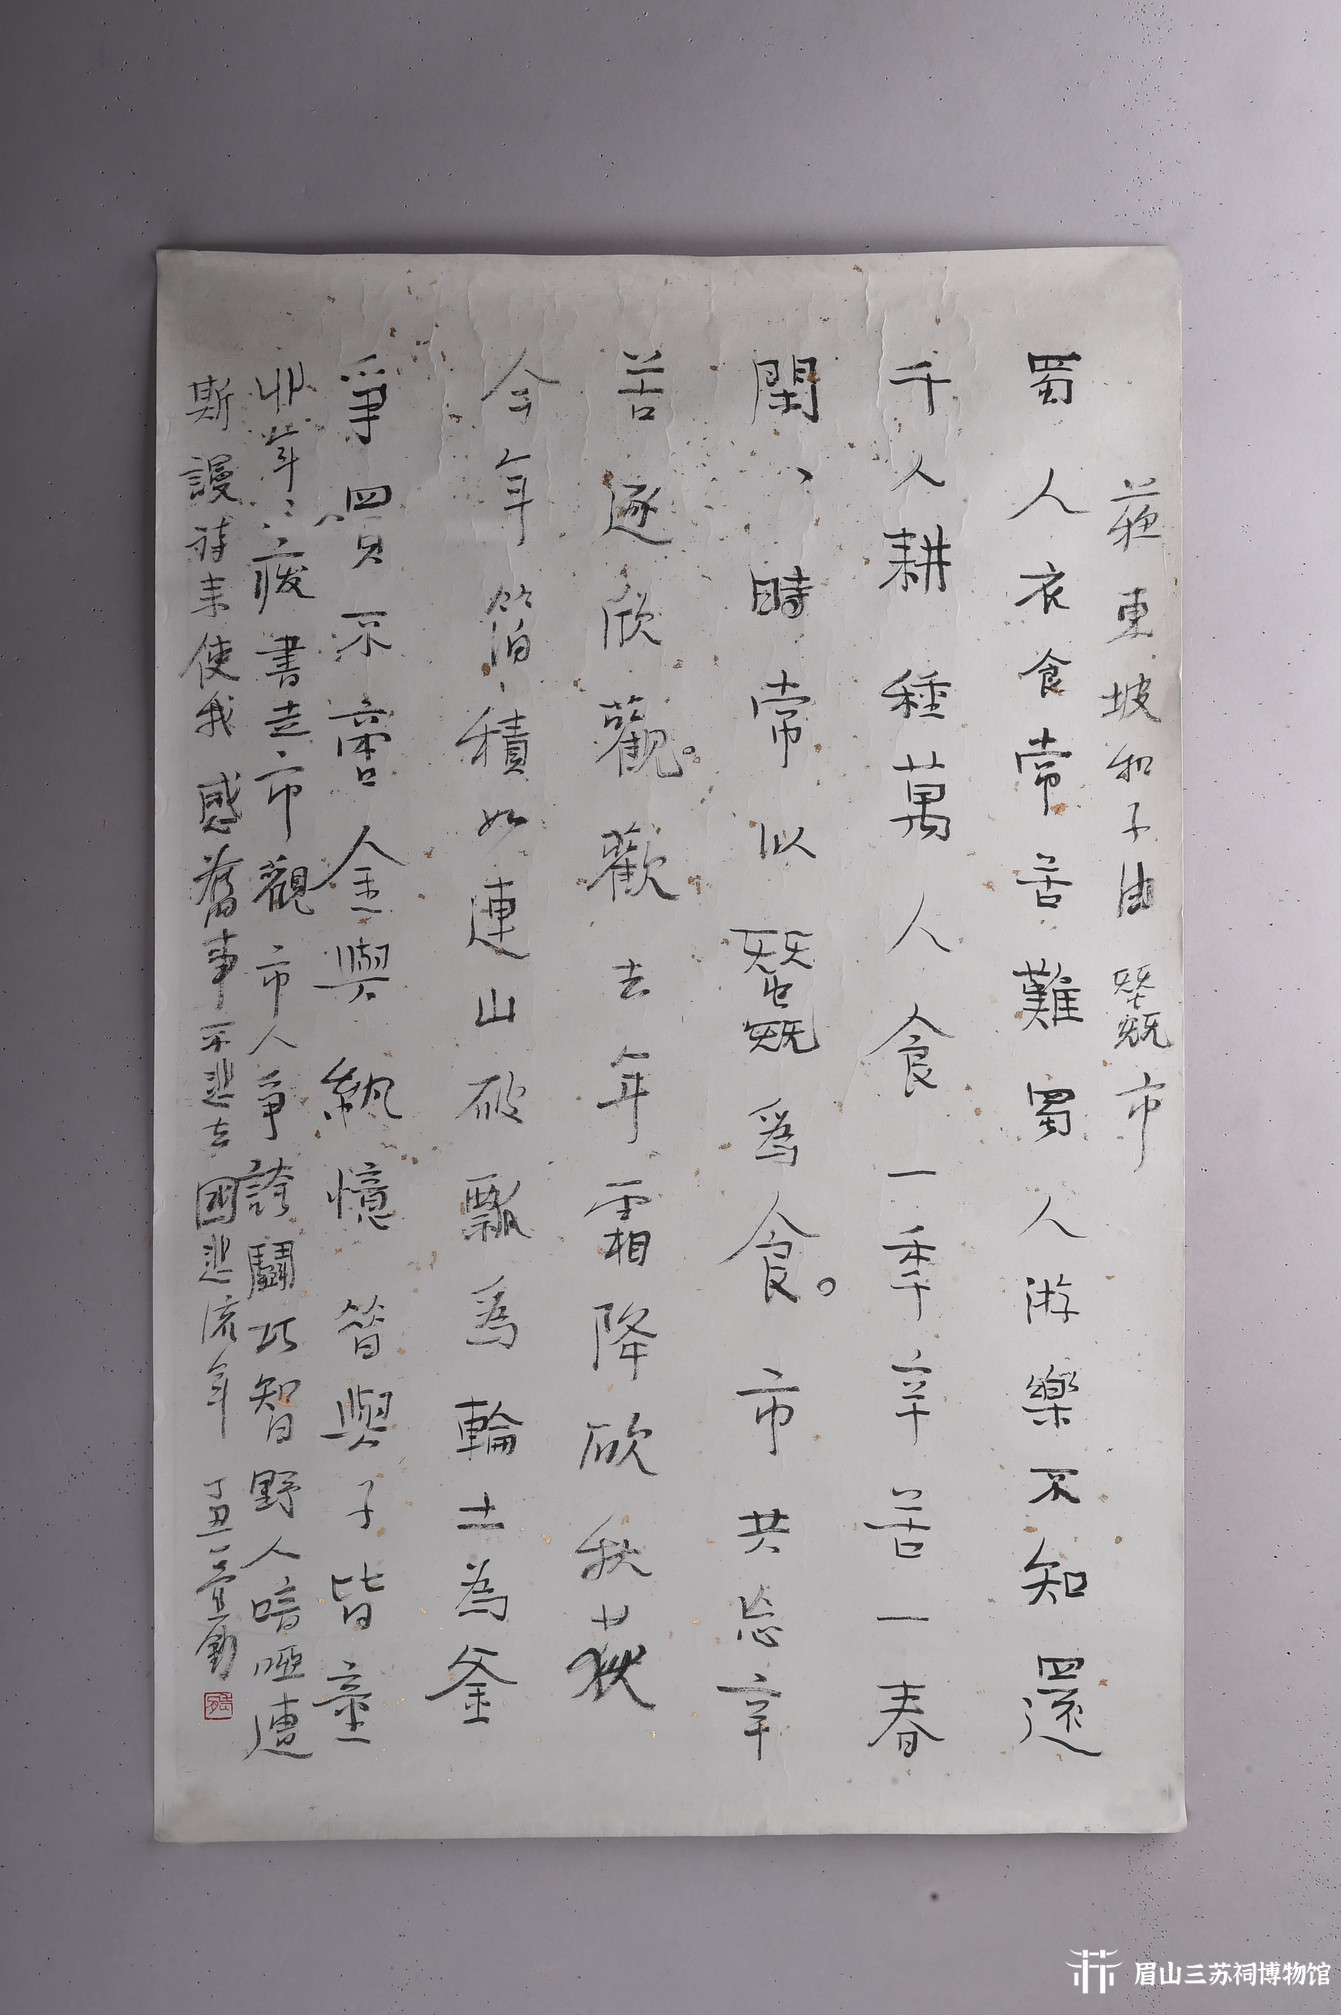 蘇東坡和子由蠶市
蜀人衣食常苦難蜀人游樂不知還
千人耕種萬人食一秊辛苦一春
閑、時常似蠶爲食。市共忘辛
苦逐欣觀。歡去年霜降斫秋荻
今年箔積如連山破瓢爲輪土為釜
爭買不啻金與紈憶昔與子皆童
丱年々廢書走市觀市人爭誇鬪巧智野人喑啞遭
斯謾詩来使我感舊事不悲去國悲流年 丁丑
眉山三苏祠博物馆